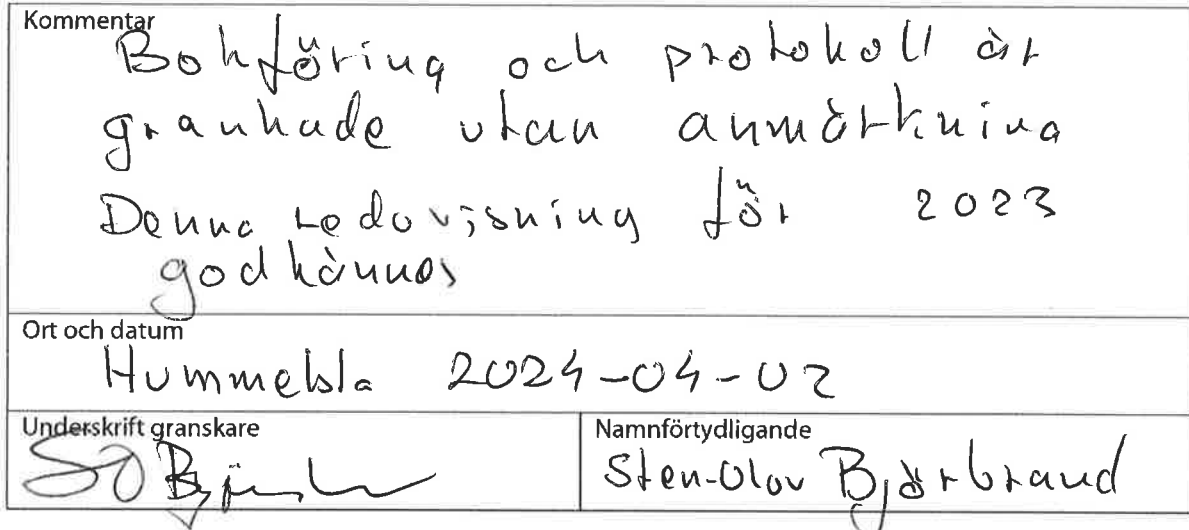 Kommentar
Bokföring och protokoll är
grankade utan anmärkning
Denna redovisning för 2023
godkännes
Ort och datum
Hummelsta 2024-04-02
Underskrift granskare
Namnförtydligande
SO
Sten-Olov Bjärbrand